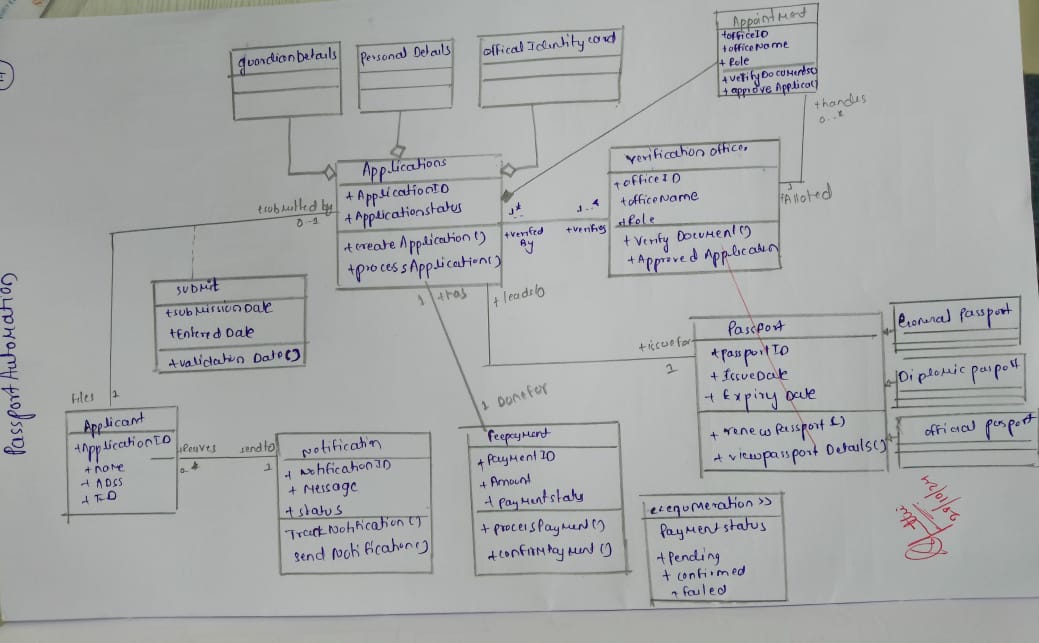 Passport Automation
guardianDetails
Personal Details
offical Identity card
Appointment
+officeID
+officeName
+ Role
+verifyDocuments()
+ approve Applica()
+handles
0..*
Applications
+ ApplicationID
+ Applicationstatus
+create Application()
+process Application()
verification officer
+officeID
+officeName
+Role
+ Verify Document()
+Approved Application
1
+Alloted
+submitted by
0-1
1*
+verified
By
1..*
+verifies
submit
+submissionDate
+Entered Date
+validation Date()
1
+has
+leadsto
+issuefor
1
Passport
+passportID
+ IssueDate
+ Expiry Date
+ renewPassport()
+ viewpassport Details()
General Passport
Diplomic pasport
official pasport
Files
1
Applicant
+ApplicationID
+name
+ ADSS
sendto
1
Notification
+ NotificationID
+ Message
+ status
Track Notification()
Send Notification()
1
Donefor
Feepayment
+PaymentID
+Amount
+ Paymentstatus
+ processPayment()
+confirmPayment()
Payment status
+pending
+ confirmed
+ failed
28/10/24